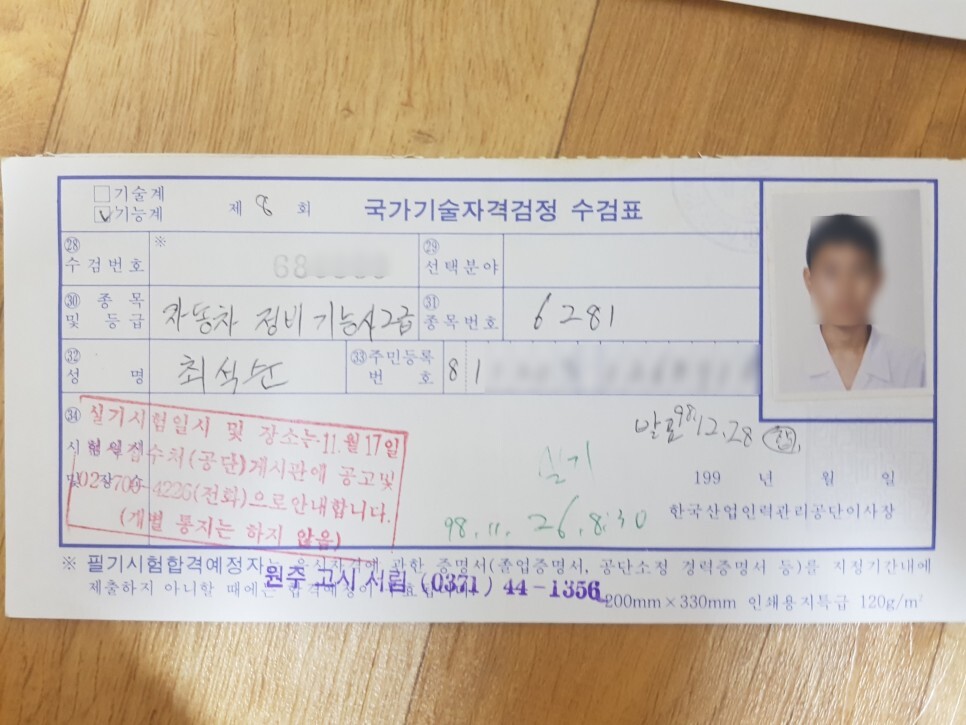 기술계
기능계
제 8 회
국가기술자격검정 수검표
㉘ 수검번호
※
68
㉙ 선택분야
㉚ 종목 및 등급
자동차 정비 기능사2급
㉛ 종목번호
6281
㉜ 성 명
최석순
㉝ 주민등록번호
81
㉞
실기시험일시 및 장소는 11.월 17일
접수처(공단)게시판에 공고및
02-700-4226(전화)으로안내합니다.
(개별 통지는 하지 않음)
발표 98.12.28 합
실기
98. 11. 26. 8:30
199 년 월 일
한국산업인력관리공단이사장
※ 필기시험합격예정자는 응시자격에 관한 증명서(졸업증명서, 공단소정 경력증명서 등)를 지정기간내에
제출하지 아니할 때에는
원주 고시 서림 (0371) 44-1356
200mm×330mm 인쇄용지특급 120g/m²